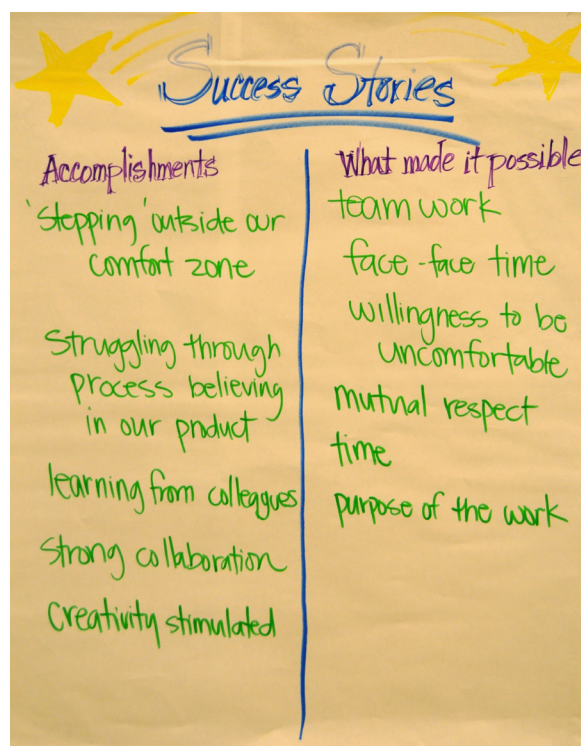 Success Stories
Accomplishments
'Stepping' outside our
comfort zone
struggling through
process believing
in our product
learning from colleagues
strong collaboration
creativity stimulated
What made it possible
team work
face-face time
willingness to be
uncomfortable
mutual respect
time
purpose of the work